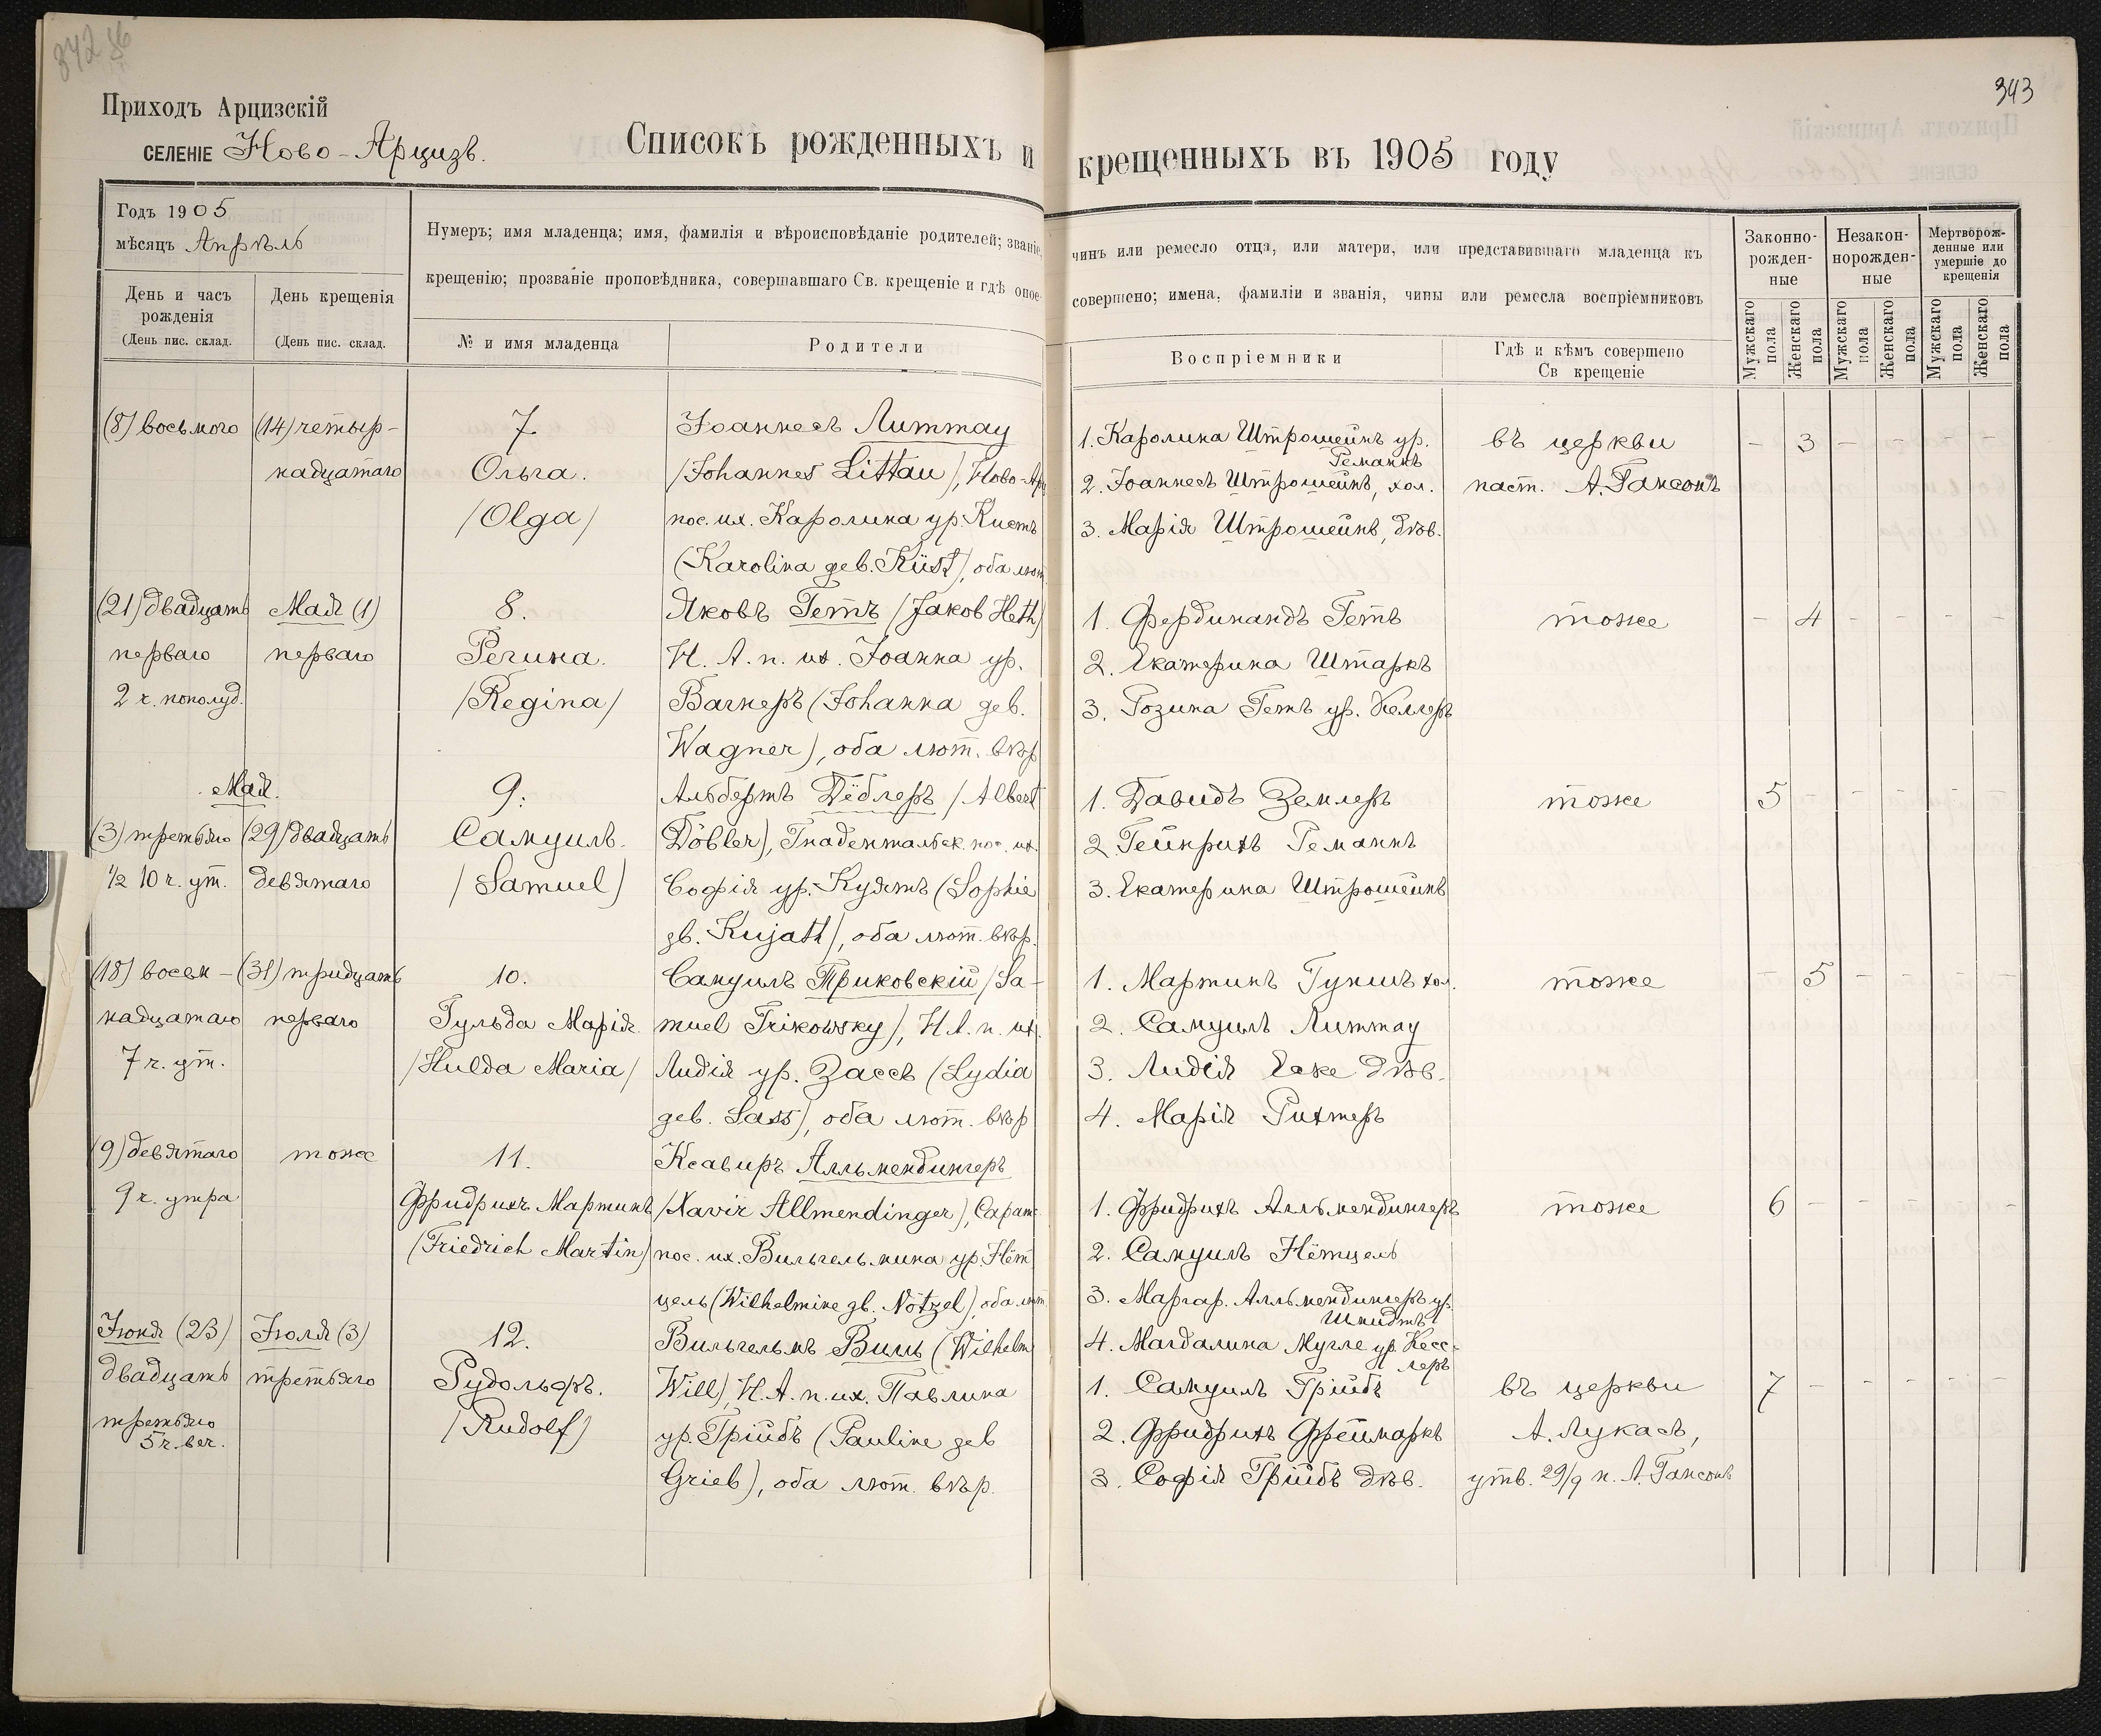 342
343
Приходъ Арцизскій
СЕЛЕНІЕ Ново-Арцизъ.
Списокъ рожденныхъ и крещенныхъ въ 1905 году
Годъ 1905
мѣсяцъ Апрѣль
Нумеръ; имя младенца; имя, фамилія и вѣроисповѣданіе родителей; званіе, чинъ или ремесло отца, или матери, или представившаго младенца къ
крещенію; прозваніе проповѣдника, совершавшаго Св. крещеніе и гдѣ оное совершено; имена, фамиліи и званія, чины или ремесла воспріемниковъ
День и часъ
рожденія
(День пис. склад.
День крещенія
(День пис. склад.
№ и имя младенца
Родители
Воспріемники
Гдѣ и кѣмъ совершено
Св крещеніе
Законно-
рожден-
ные
Незакон-
норожден-
ные
Мертворож-
денные или
умершіе до
крещенія
Мужскаго
пола
Женскаго
пола
Мужскаго
пола
Женскаго
пола
Мужскаго
пола
Женскаго
пола
(8) восьмого
(14) четыр-
надцатаго
7.
Ольга.
/Olga/
Іоаннесъ Литтау
/Johannes Littau), Ново-Арц
пос. их. Каролина ур. Кистъ
(Karolina geb. Küst), оба лют.
1. Каролина Штрошейнъ ур.
Геманнъ
2. Іоаннесъ Штрошейнъ, хол.
3. Марія Штрошейнъ, дѣв.
въ церкви
паст. А. Гансонъ
– 3 – – – –
(21) двадцать
перваго
2 ч. пополуд.
Мая (1)
перваго
8.
Регина.
/Regina/
Яковъ Гетъ /Jakob Heth)
Н. А. п. их. Іоанна ур.
Вагнеръ (Johanna geb.
Wagner), оба лют. вѣр
1. Фердинандъ Гетъ
2. Екатерина Штаркъ
3. Розина Гетъ ур. Келлеръ
тоже
– 4 – – – –
Мая.
(3) третьяго
1/2 10 ч. ут.
(29) двадцать
девятаго
9.
Самуилъ.
/Samuel)
Альбертъ Дёблеръ /Albert
Döbler), Гнадентальск. пос. их.
Софія ур. Куятъ (Sophie
gb. Kujath), оба лют. вѣр.
1. Давидъ Землеръ
2. Гейнрихъ Геманнъ
3. Екатерина Штрошейнъ
тоже
5 – – – –
(18) восем-
надцатаго
7 ч. ут.
(31) тридцать
перваго
10.
Гульда Марія
/Hulda Maria/
Самуилъ Триковскій /Sa-
muel Trikowsky), Н. А. п. их.
Лидія ур. Зассъ (Lydia
geb. Sass), оба лют. вѣр
1. Мартинъ Гуншъ хол.
2. Самуилъ Литтау
3. Лидія Еске дѣв.
4. Марія Рихтеръ
тоже
– 5 – – – –
(9) девятаго
9 ч. утра
тоже
11.
Фридрихъ Мартинъ
(Friedrich Martin)
Ксавиръ Алльмендингеръ
/Xavir Allmendinger), Сарат-
пос. их. Вильгельмина ур. Нёт-
цель (Wilhelmine gb. Nötzel), оба лют
1. Фридрихъ Алльмендингеръ
2. Самуилъ Нётцель
3. Маргар. Алльмендингеръ ур.
Шмидтъ
4. Магдалина Мугле ур. Кесс-
леръ
тоже
6 – – – –
Іюня (23)
двадцать
третьяго
5 ч. веч.
Іюля (3)
третьяго
12.
Рудольфъ.
/Rudolf)
Вильгельмъ Вилль (Wilhelm
Will), Н. А. п. их. Павлина
ур. Грійбъ (Pauline geb
Grieb), оба лют. вѣр.
1. Самуилъ Грійбъ
2. Фридрихъ Фреймаркъ
3. Софія Грійбъ дѣв.
въ церкви
А. Лукасъ,
утв. 29/9 п. А. Гансонъ
7 – – – – –